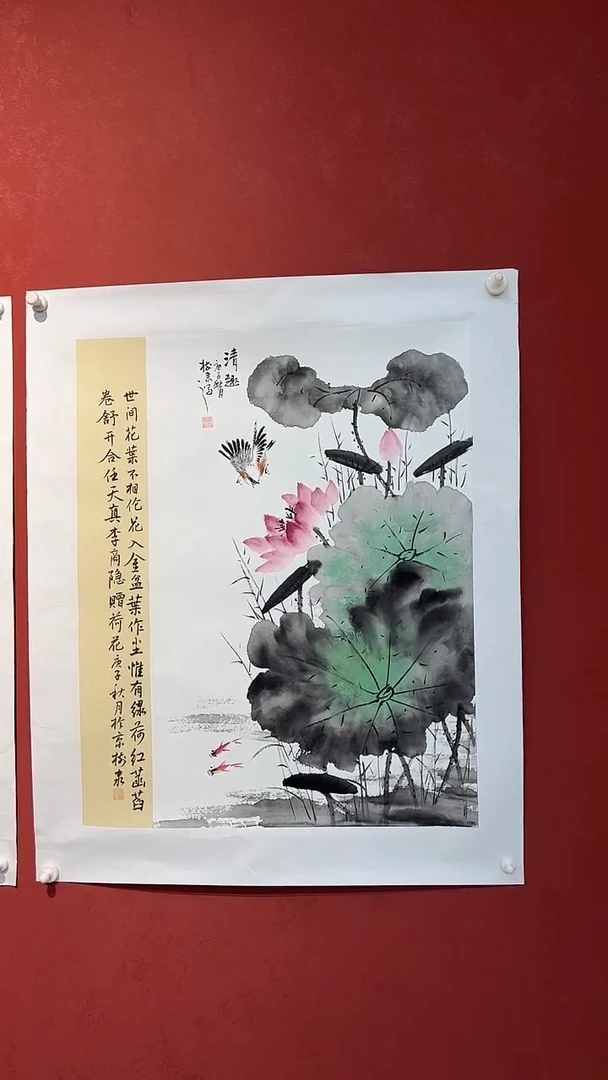 清趣
庚子秋月
於京
世间花葉不相伦花入金盆葉作尘惟有绿荷红菡萏
卷舒开合任天真李商隐赠荷花庚子秋月於京树泉